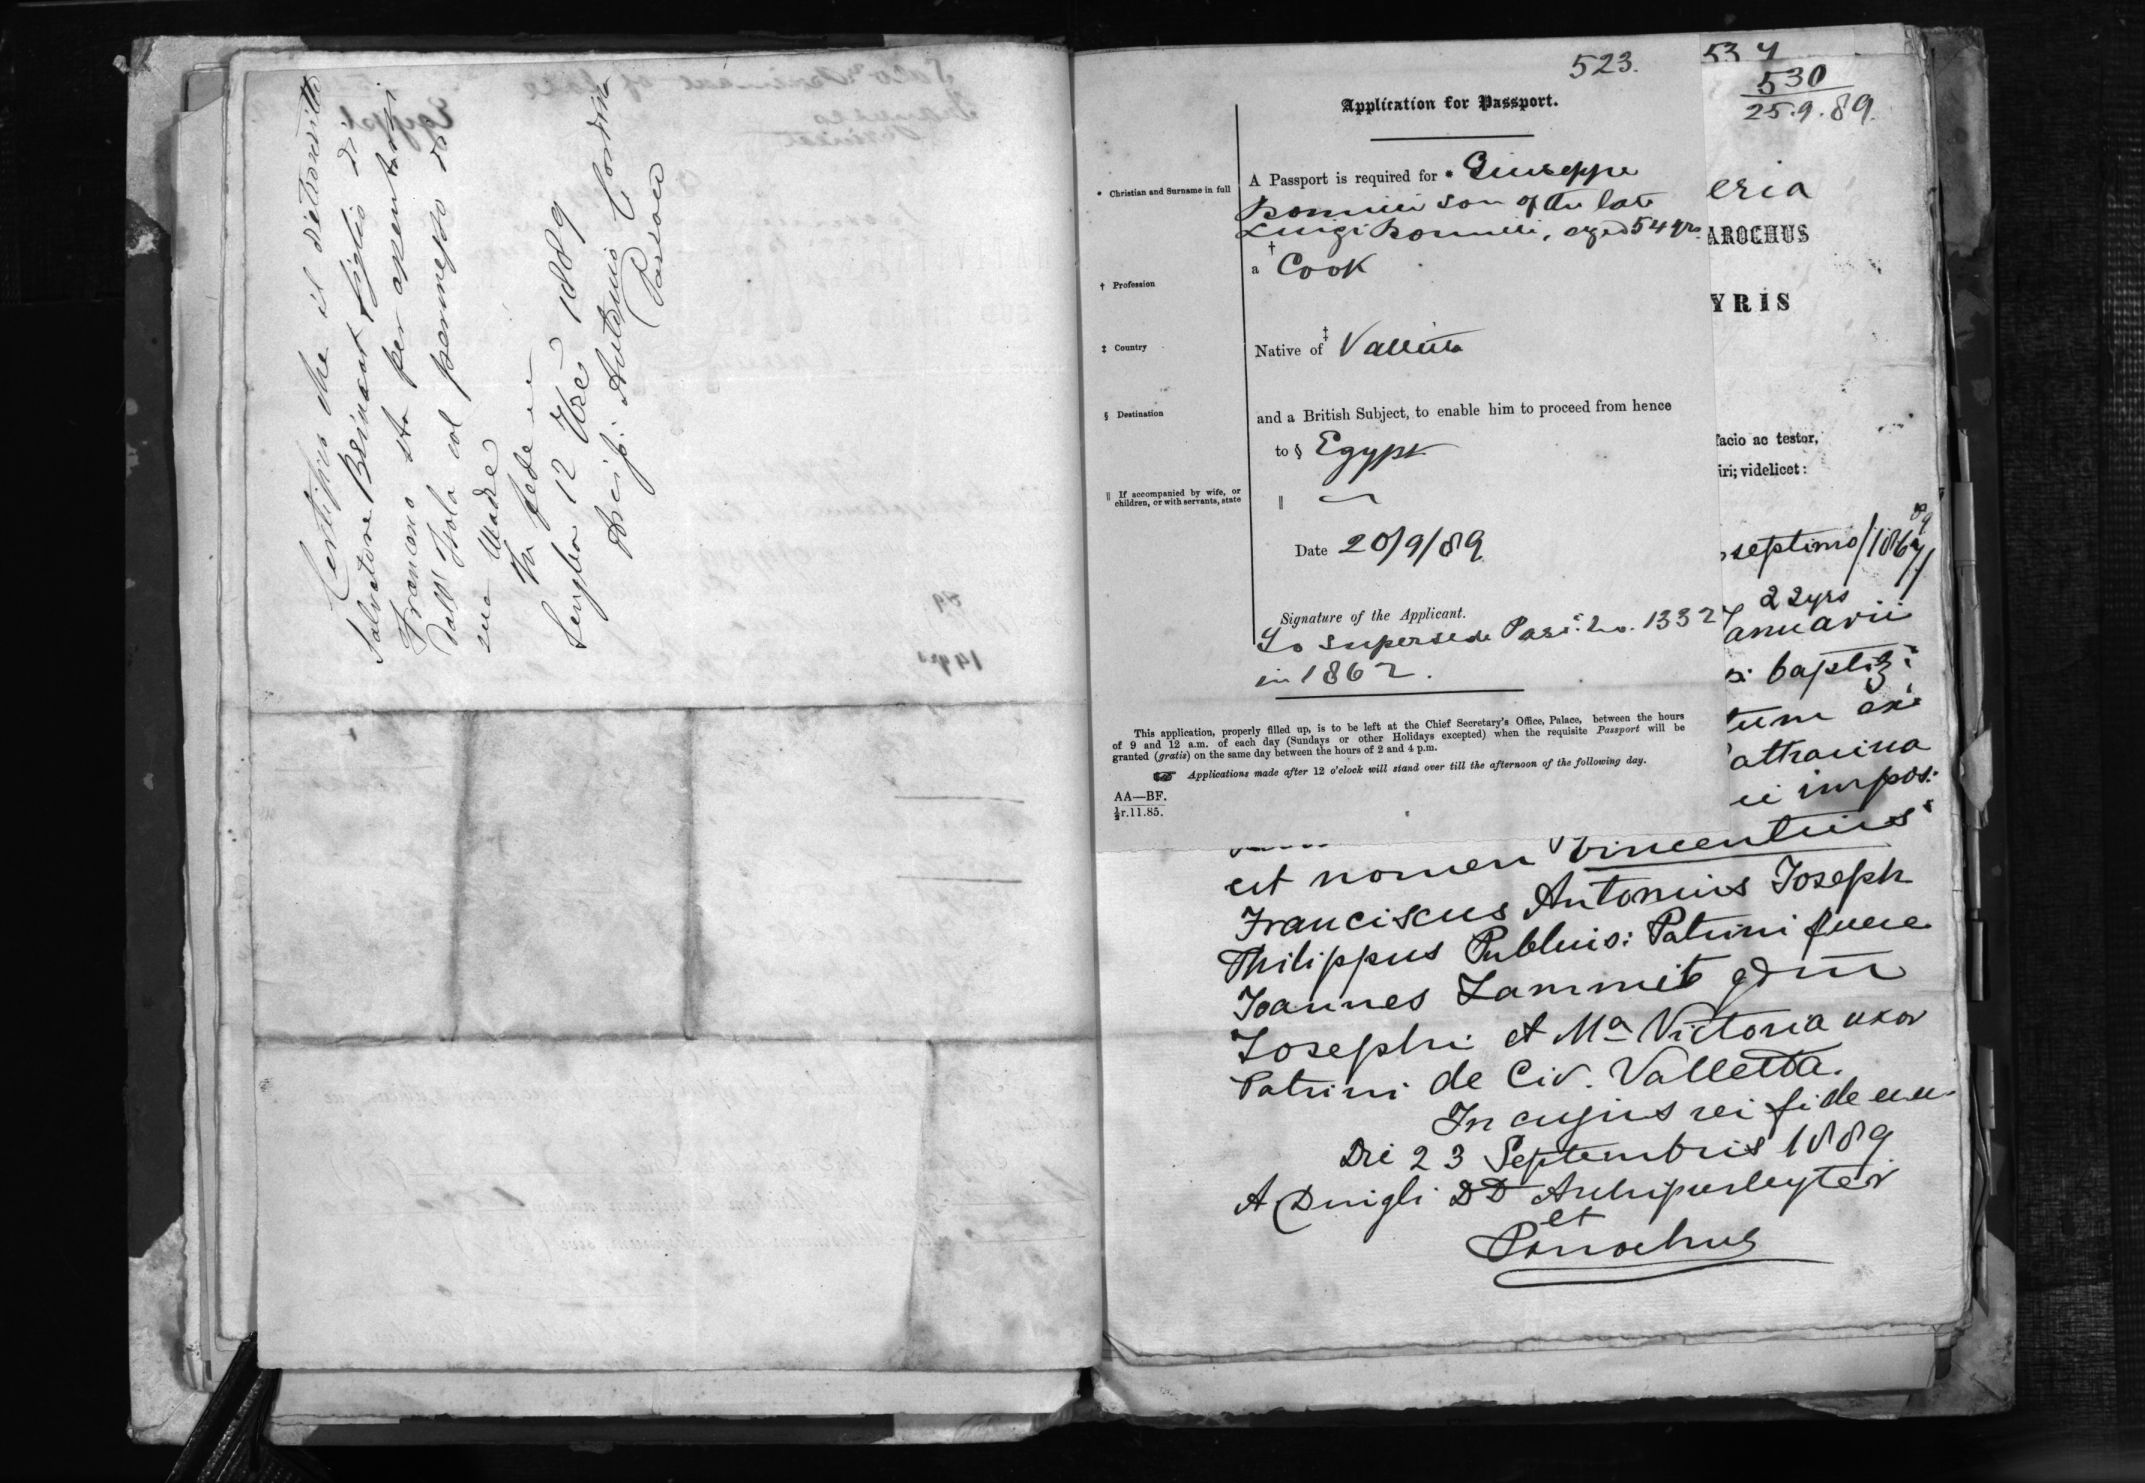 Certifico che il
Salvatore Brincat figlio di
Francesco sta per assentarsi
dall' Isola col permesso di
sua Madre
In fede
Senglea 12 1889
Antonio
Parroco
523.
Application for Passport.
* Christian and Surname in full
A Passport is required for * Giuseppe
son of the late
Luigi aged 54 yrs
† Profession
a † Cook
‡ Country
Native of ‡ Valletta
§ Destination
and a British Subject, to enable him to proceed from hence
to § Egypt
‖ If accompanied by wife, or
children, or with servants, state
‖
Date 20/9/89
Signature of the Applicant.
To supersede Pass. No. 1332
in 1862.
This application, properly filled up, is to be left at the Chief Secretary's Office, Palace, between the hours
of 9 and 12 a.m. of each day (Sundays or other Holidays excepted) when the requisite Passport will be
granted (gratis) on the same day between the hours of 2 and 4 p.m.
Applications made after 12 o'clock will stand over till the afternoon of the following day.
AA—BF.
½r.11.85.
534
530
25.9.89
eria
AROCHUS
YRIS
facio ac testor,
iri; videlicet:
septimo/1867/
89
22yrs
anuarii
baptiz:
tum
atharina
ei impos:
est nomen Vincentius
Franciscus Antonius Joseph
Philippus Publius: Patrini fuere
Joannes Zammit
Josephi et Ma Victoria uxor
Patrini de Civ. Valletta.
In cujus rei fidem
Die 23 Septembris 1889
A Dingli DD Archipresbyter
et
Parochus